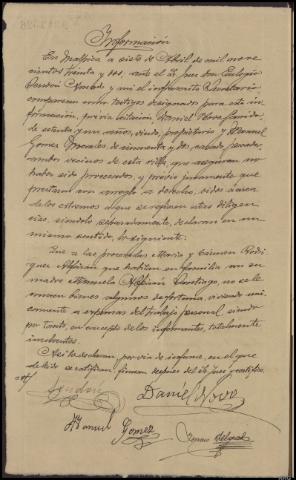 Información
En Malpica a siete de Abril de mil nove
cientos treinta y dos, ante el Sr Juez don Eulogio
y mi el infrascrito Secretario
comparecen como testigos designados para esta in
formación, previa citación Daniel Nove
de setenta y un años, viudo, propietario y Manuel
Gomez Morales de cincuenta y dos, casado,
ambos vecinos de esta villa, que aseguran no
haber sido procesados, y previo juramento que
prestaron con arreglo a derecho, oidos acerca
de los extremos a que se refieren estas diligen
cias, siendolo separadamente, declaran en un
mismo sentido, lo siguiente:
Que a las procesadas Maria y Carmen Rodri
guez que habitan en familia con su
madre Manuela Santiago, no se le
conocen bienes algunos de fortuna, viviendo uni
camente a expensas del trabajo personal, siendo
por tanto, en concepto de los informantes, totalmente
insolventes.
Asi lo declaran, por via de informe, en el que
leido se ratifican, firman despues del Sr Juez y certifico
Daniel Nove
Manuel Gomez